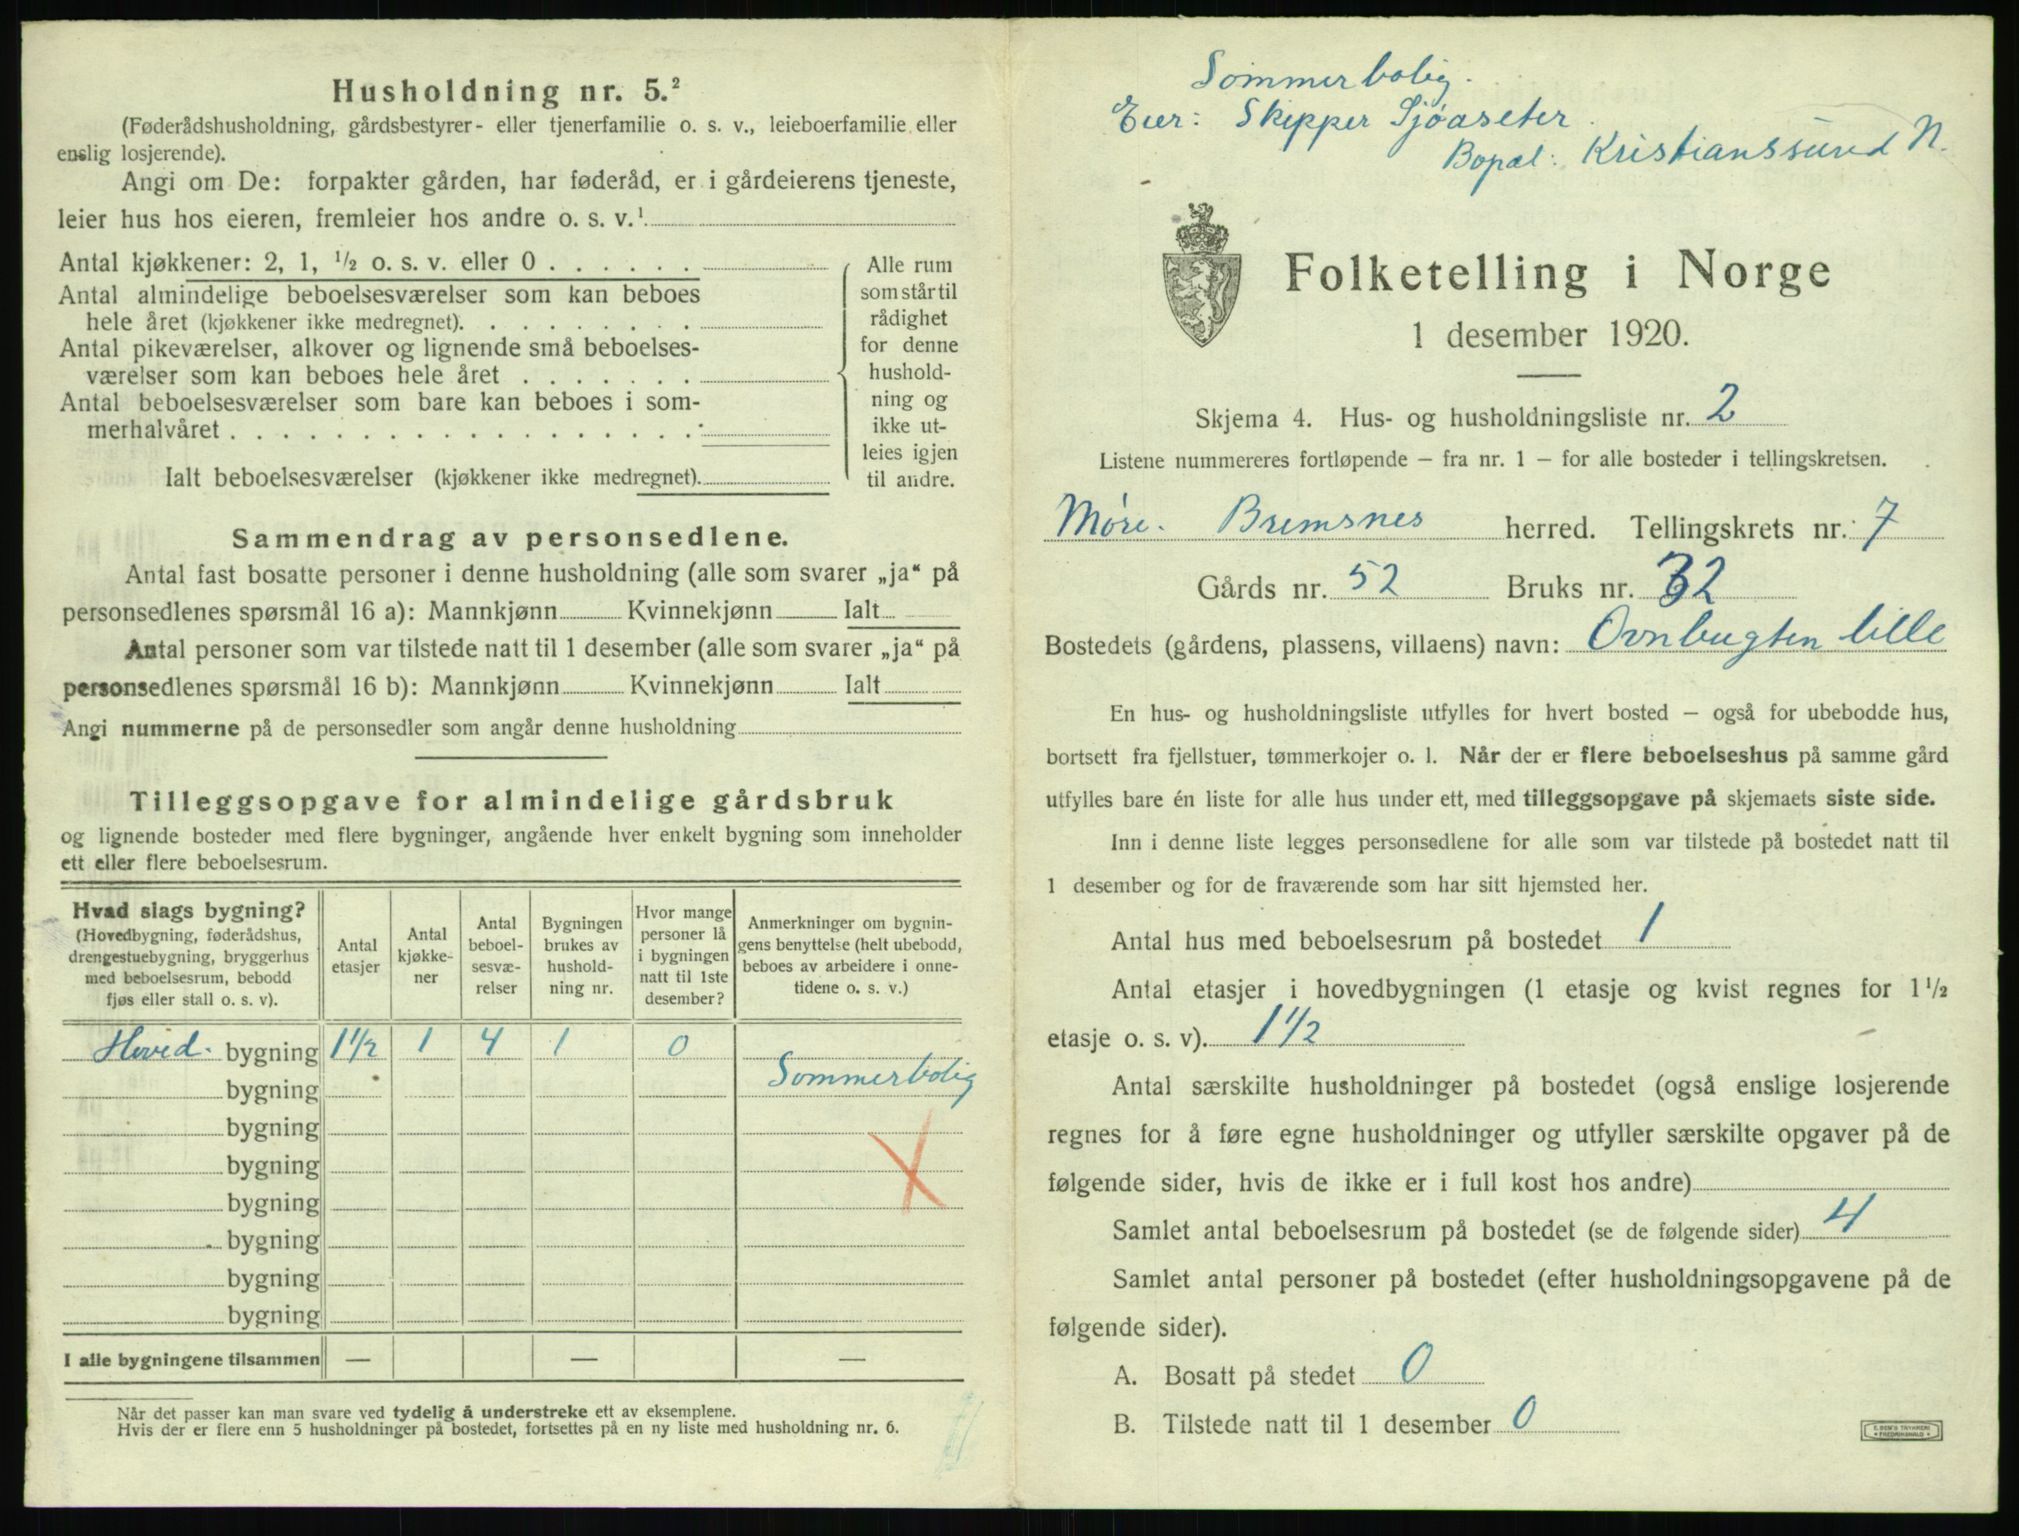 Husholdning nr. 5.²
(Føderådshusholdning, gårdsbestyrer- eller tjenerfamilie o. s. v., leieboerfamilie eller
enslig losjerende).
Angi om De: forpakter gården, har føderåd, er i gårdeierens tjeneste,
leier hus hos eieren, fremleier hos andre o. s. v.¹
Antal kjøkkener: 2, 1, ½ o. s. v. eller 0 . . . . . .
Antal almindelige beboelsesværelser som kan beboes
hele året (kjøkkener ikke medregnet). . . . . . . . .
Antal pikeværelser, alkover og lignende små beboelses-
værelser som kan beboes hele året . . . . . . .
Antal beboelsesværelser som bare kan beboes i som-
merhalvåret . . . . . . . . . . . . . . . . . .
Ialt beboelsesværelser (kjøkkener ikke medregnet).
Alle rum
som står til
rådighet
for denne
hushold-
ning og
ikke ut-
leies igjen
til andre.
Sammendrag av personsedlene.
Antal fast bosatte personer i denne husholdning (alle som svarer „ja“ på
personsedlenes spørsmål 16 a): Mannkjønn Kvinnekjønn Ialt
Antal personer som var tilstede natt til 1 desember (alle som svarer „ja“ på
personsedlenes spørsmål 16 b): Mannkjønn Kvinnekjønn Ialt
Angi nummerne på de personsedler som angår denne husholdning
Tilleggsopgave for almindelige gårdsbruk
og lignende bosteder med flere bygninger, angående hver enkelt bygning som inneholder
ett eller flere beboelsesrum.
Hvad slags bygning?
(Hovedbygning, føderådshus,
drengestuebygning, bryggerhus
med beboelsesrum, bebodd
fjøs eller stall o. s. v).
Antal
etasjer
Antal
kjøkke-
ner
Antal
beboel-
sesvæ-
relser
Bygningen
brukes av
hushold-
ning nr.
Hvor mange
personer lå
i bygningen
natt til 1ste
desember?
Anmerkninger om bygnin-
gens benyttelse (helt ubebodd,
beboes av arbeidere i onne-
tidene o. s. v.)
Hoved- bygning 1½ 1 4 1 0
bygning Sommerbolig
bygning
bygning
bygning
bygning
bygning
bygning
I alle bygningene tilsammen — — —
Når det passer kan man svare ved tydelig å understreke ett av eksemplene.
Hvis der er flere enn 5 husholdninger på bostedet, fortsettes på en ny liste med husholdning nr. 6.
Sommerbolig.
Eier: Skipper Sjøaseter.
Bopæl: Kristianssund N.
Folketelling i Norge
1 desember 1920.
Skjema 4. Hus- og husholdningsliste nr. 2
Listene nummereres fortløpende — fra nr. 1 — for alle bosteder i tellingskretsen.
Møre. Bremsnes herred. Tellingskrets nr. 7
Gårds nr. 52 Bruks nr. 32
Bostedets (gårdens, plassens, villaens) navn: Ovnbugten lille
En hus- og husholdningsliste utfylles for hvert bosted — også for ubebodde hus,
bortsett fra fjellstuer, tømmerkojer o. l. Når der er flere beboelseshus på samme gård
utfylles bare én liste for alle hus under ett, med tilleggsopgave på skjemaets siste side.
Inn i denne liste legges personsedlene for alle som var tilstede på bostedet natt til
1 desember og for de fraværende som har sitt hjemsted her.
Antal hus med beboelsesrum på bostedet 1
Antal etasjer i hovedbygningen (1 etasje og kvist regnes for 1½
etasje o. s. v). 1½
Antal særskilte husholdninger på bostedet (også enslige losjerende
regnes for å føre egne husholdninger og utfyller særskilte opgaver på de
følgende sider, hvis de ikke er i full kost hos andre)
Samlet antal beboelsesrum på bostedet (se de følgende sider) 4
Samlet antal personer på bostedet (efter husholdningsopgavene på de
følgende sider).
A. Bosatt på stedet 0
B. Tilstede natt til 1 desember 0